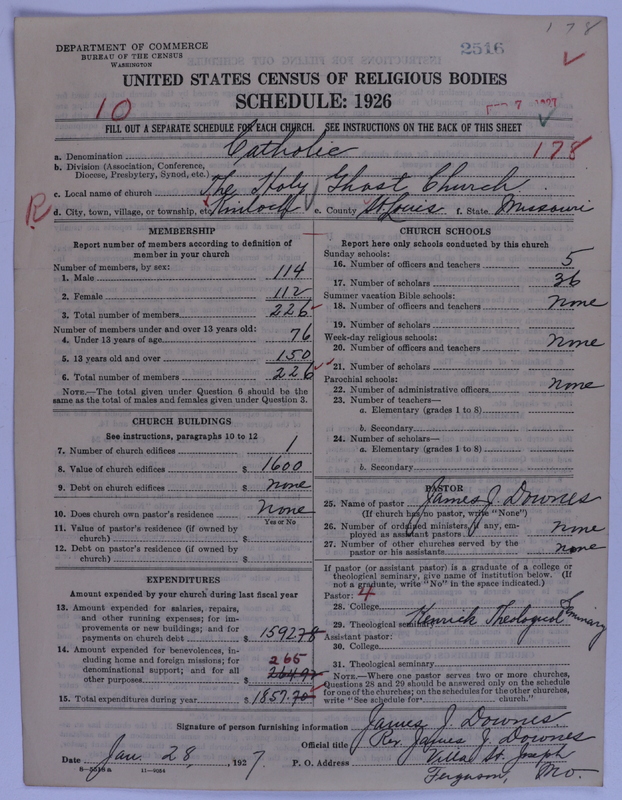 178
2516
DEPARTMENT OF COMMERCE
BUREAU OF THE CENSUS
WASHINGTON
UNITED STATES CENSUS OF RELIGIOUS BODIES
SCHEDULE: 1926
10
FEB 7 1927
FILL OUT A SEPARATE SCHEDULE FOR EACH CHURCH. SEE INSTRUCTIONS ON THE BACK OF THIS SHEET
a. Denomination Catholic 178
b. Division (Association, Conference, Diocese, Presbytery, Synod, etc.)
c. Local name of church The Holy Ghost Church
R d. City, town, village, or township, etc. Kinloch e. County St Louis f. State Missouri
MEMBERSHIP
Report number of members according to definition of
member in your church
Number of members, by sex:
1. Male 114
2. Female 112
3. Total number of members 226
Number of members under and over 13 years old:
4. Under 13 years of age 76
5. 13 years old and over 150
6. Total number of members 226
NOTE.—The total given under Question 6 should be
same as the total of males and females given under Question 3.
CHURCH BUILDINGS
See instructions, paragraphs 10 to 12
7. Number of church edifices 1
8. Value of church edifices $ 1600
9. Debt on church edifices $ none
10. Does church own pastor's residence None
Yes or No
11. Value of pastor's residence (if owned by
church) $
12. Debt on pastor's residence (if owned by
church) $
EXPENDITURES
Amount expended by your church during last fiscal year
13. Amount expended for salaries, repairs,
and other running expenses; for im-
provements or new buildings; and for
payments on church debt $ 159278
14. Amount expended for benevolences, in-
cluding home and foreign missions; for
denominational support; and for all
other purposes $ 265
15. Total expenditures during year $ 1857.70
CHURCH SCHOOLS
Report here only schools conducted by this church
Sunday schools:
16. Number of officers and teachers 5
17. Number of scholars 36
Summer vacation Bible schools:
18. Number of officers and teachers None
19. Number of scholars
Week-day religious schools:
20. Number of officers and teachers None
21. Number of scholars
Parochial schools:
22. Number of administrative officers None
23. Number of teachers—
a. Elementary (grades 1 to 8)
b. Secondary
24. Number of scholars—
a. Elementary (grades 1 to 8)
b. Secondary
PASTOR
25. Name of pastor James J. Downes
(If church has no pastor, write "None")
26. Number of ordained ministers, if any, em-
ployed as assistant pastors None
27. Number of other churches served by the
pastor or his assistants none
If pastor (or assistant pastor) is a graduate of a college or
theological seminary, give name of institution below. (If
not a graduate, write "No" in the space indicated.)
Pastor: 4
28. College
29. Theological seminary Kenrick Theological Seminary
Assistant pastor:
30. College
31. Theological seminary
NOTE.—Where one pastor serves two or more churches,
Questions 28 and 29 should be answered only on the schedule
for one of the churches; on the schedules for the other churches,
write "See schedule for church."
Signature of person furnishing information James J. Downes
Official title Rev. James J Downes
Date Jan 28, 1927. P. O. Address Villa St. Joseph
8—5518a 11—9054
Ferguson, Mo.